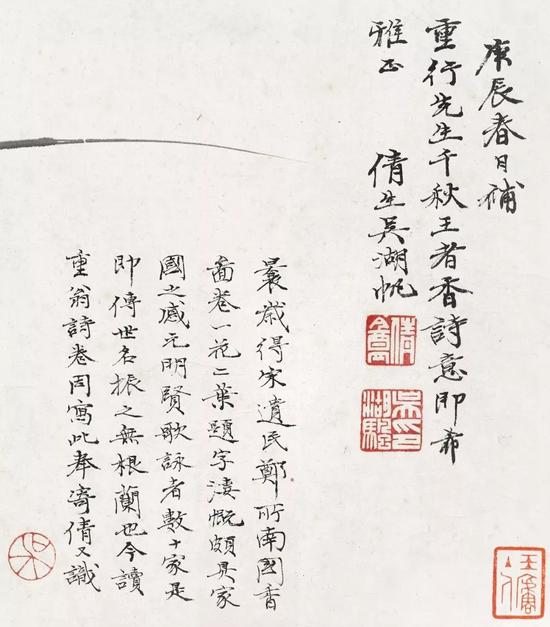 庚辰春日補
重行先生千秋王者香詩意即希
雅正 倩生吳湖帆
曩歲得宋遺民鄭所南國香
圖卷一花二葉題字淒慨頗具家
國之感元明賢歌詠者數十家是
即傳世名振之無根蘭也今讀
重翁詩卷因寫此奉寄倩又識